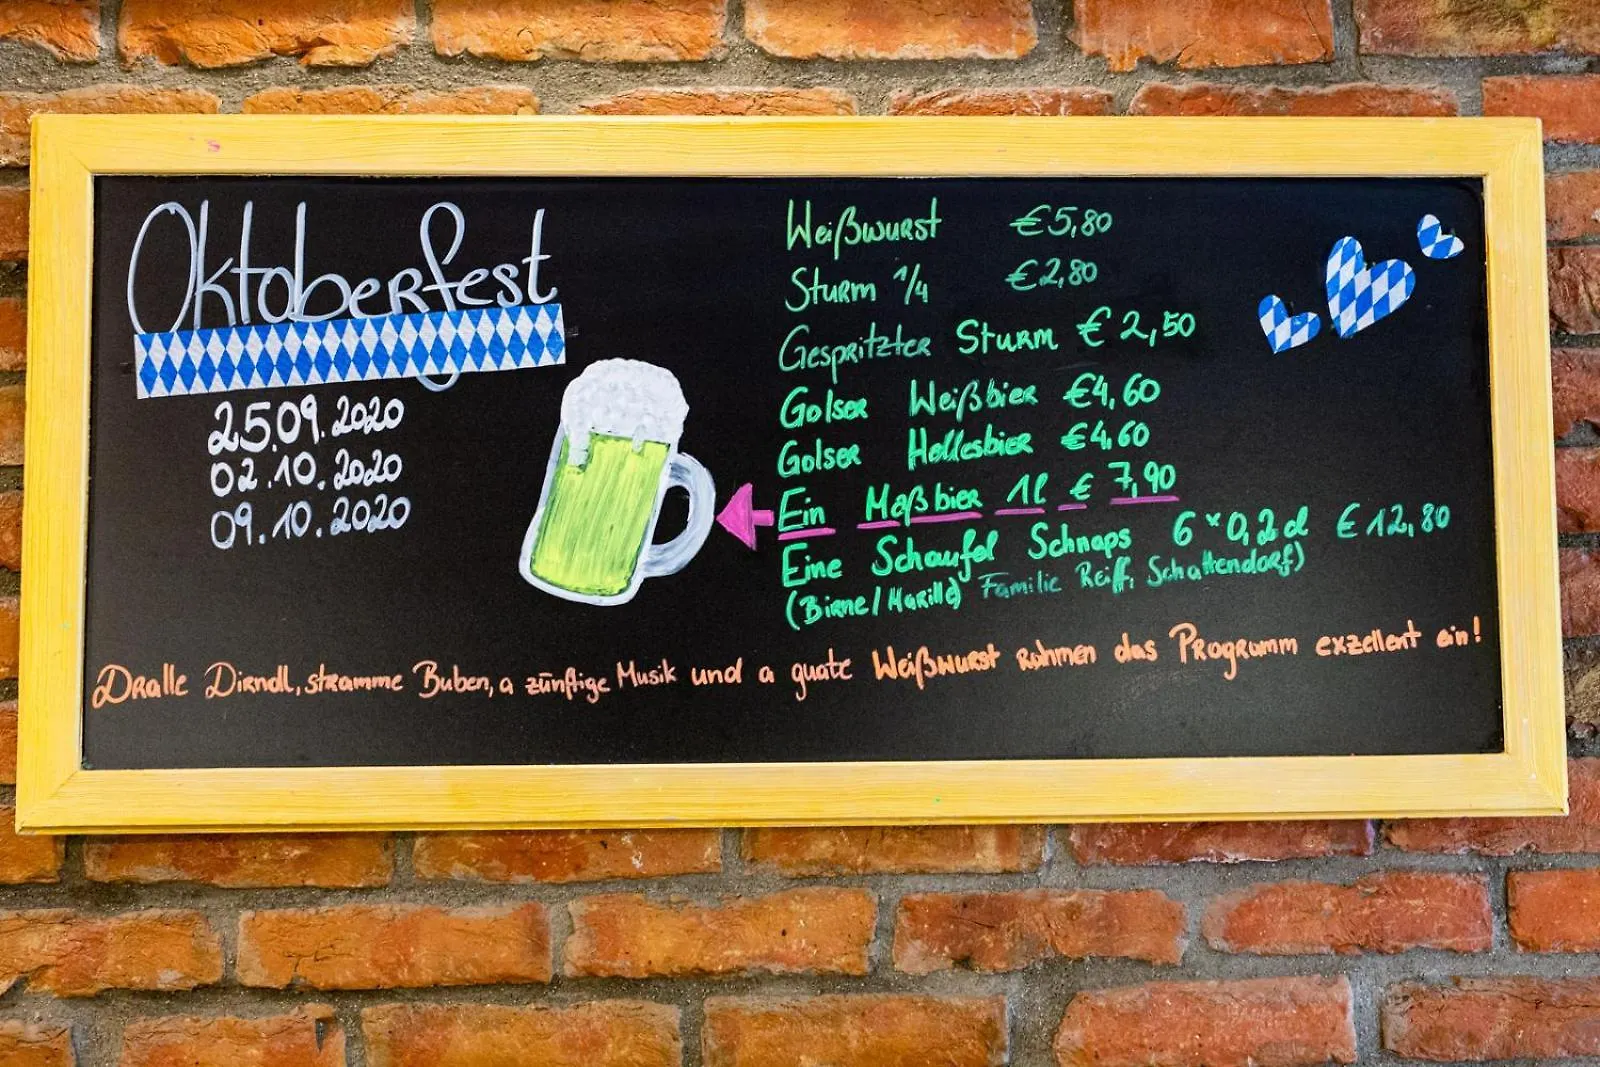 Oktoberfest
25.09.2020
02.10.2020
09.10.2020
Weißwurst €5,80
Sturm 1/4 €2,80
Gespritzter Sturm € 2,50
Golser Weißbier €4,60
Golser Hellesbier €4,60
Ein Maßbier 1l € 7,90
Eine Schaufel Schnaps 6 x 0,2cl €12,80
(Birne/Marille) Familie Reiff, Schattendorf)
Dralle Dirndl, stramme Buben, a zünftige Musik und a guate Weißwurst rahmen das Programm exzellent ein!